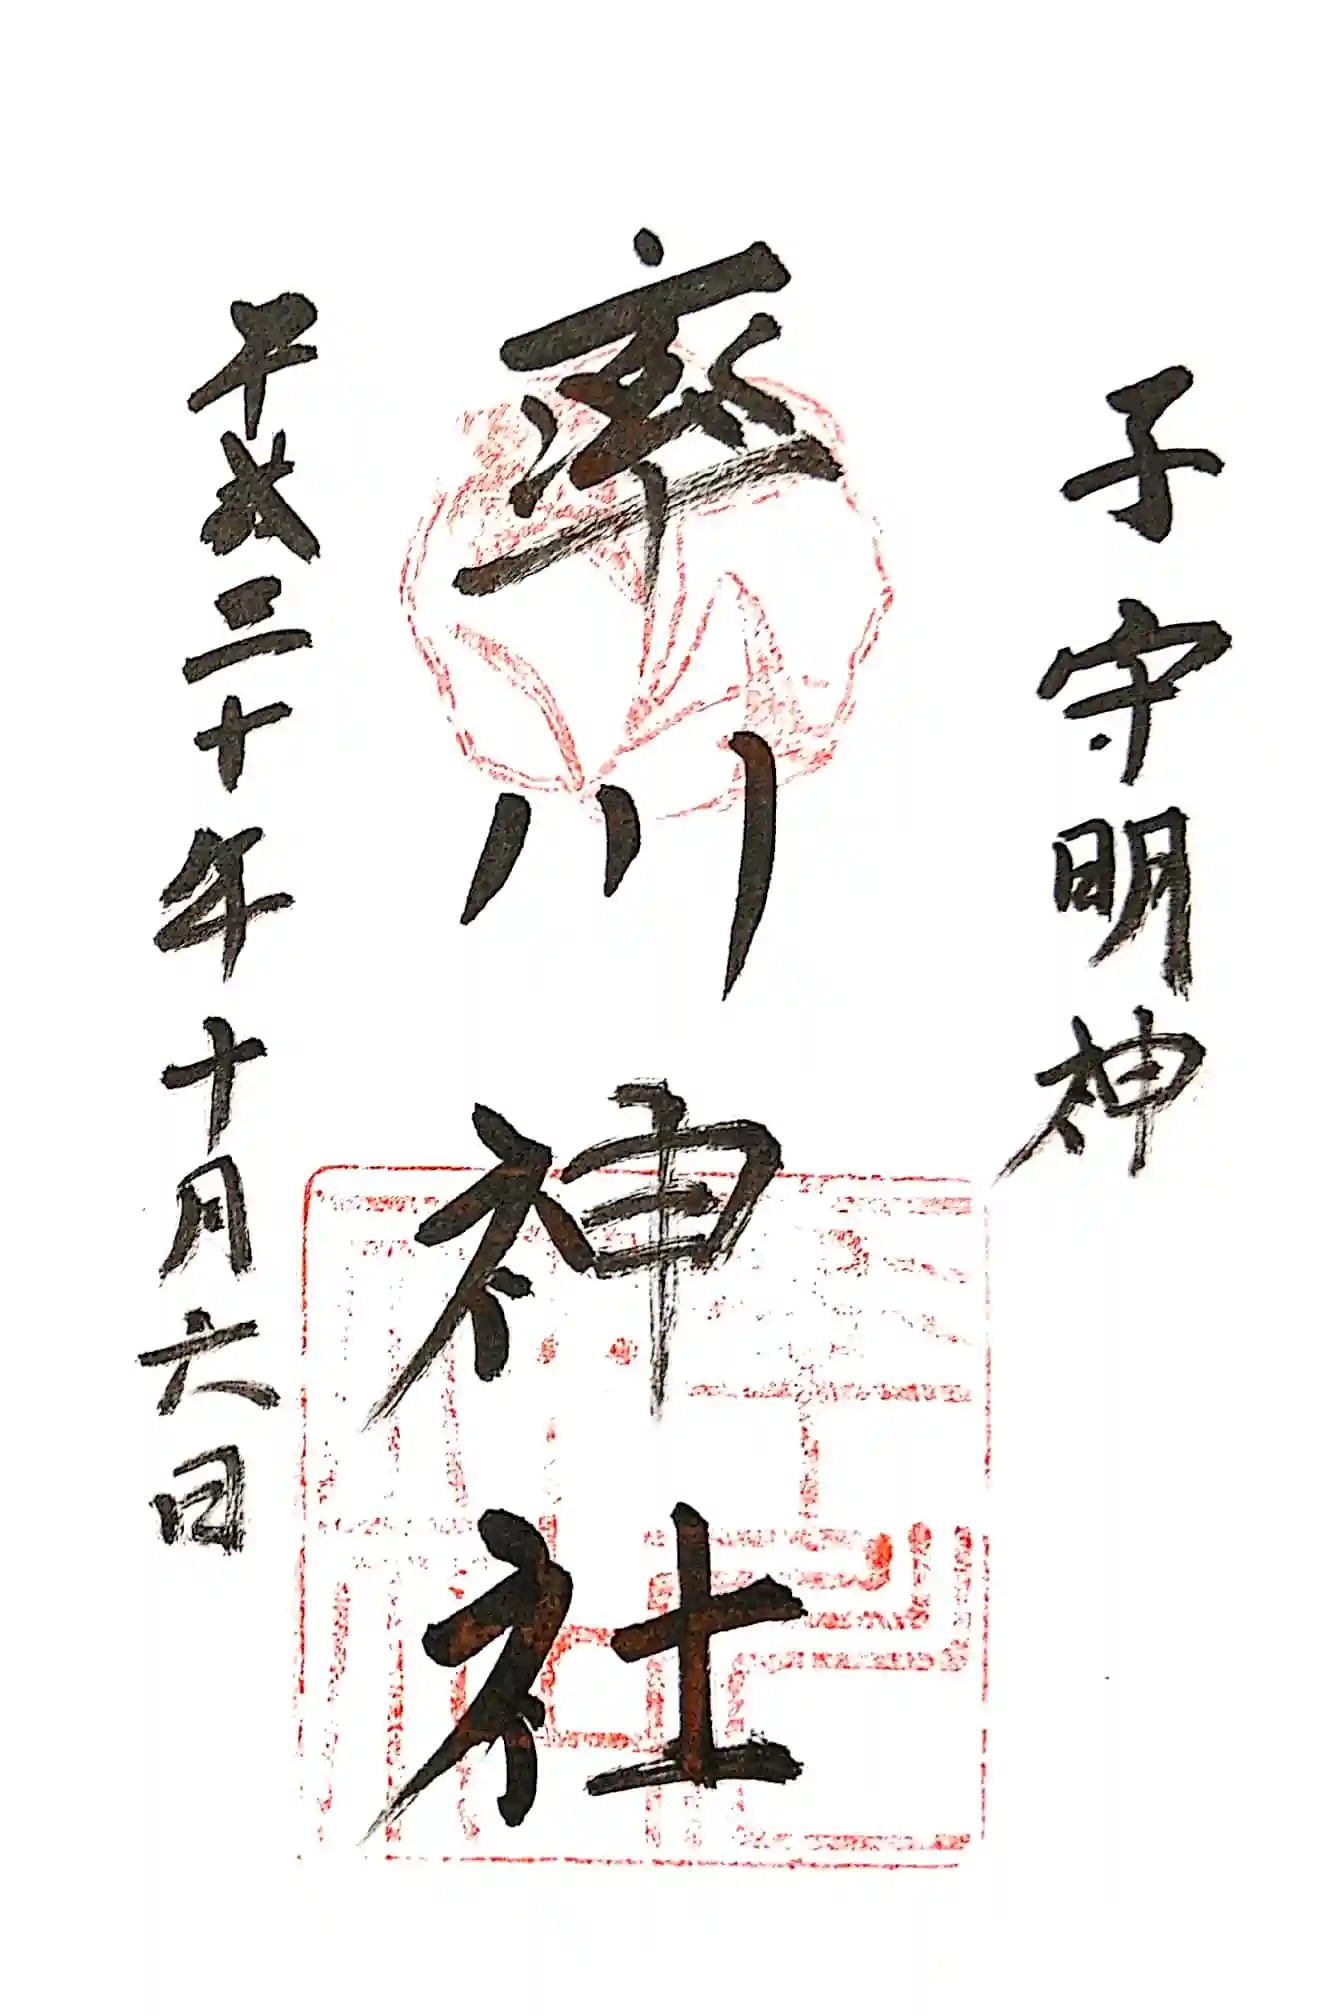 子守明神
率川神社
平成三十年十月六日